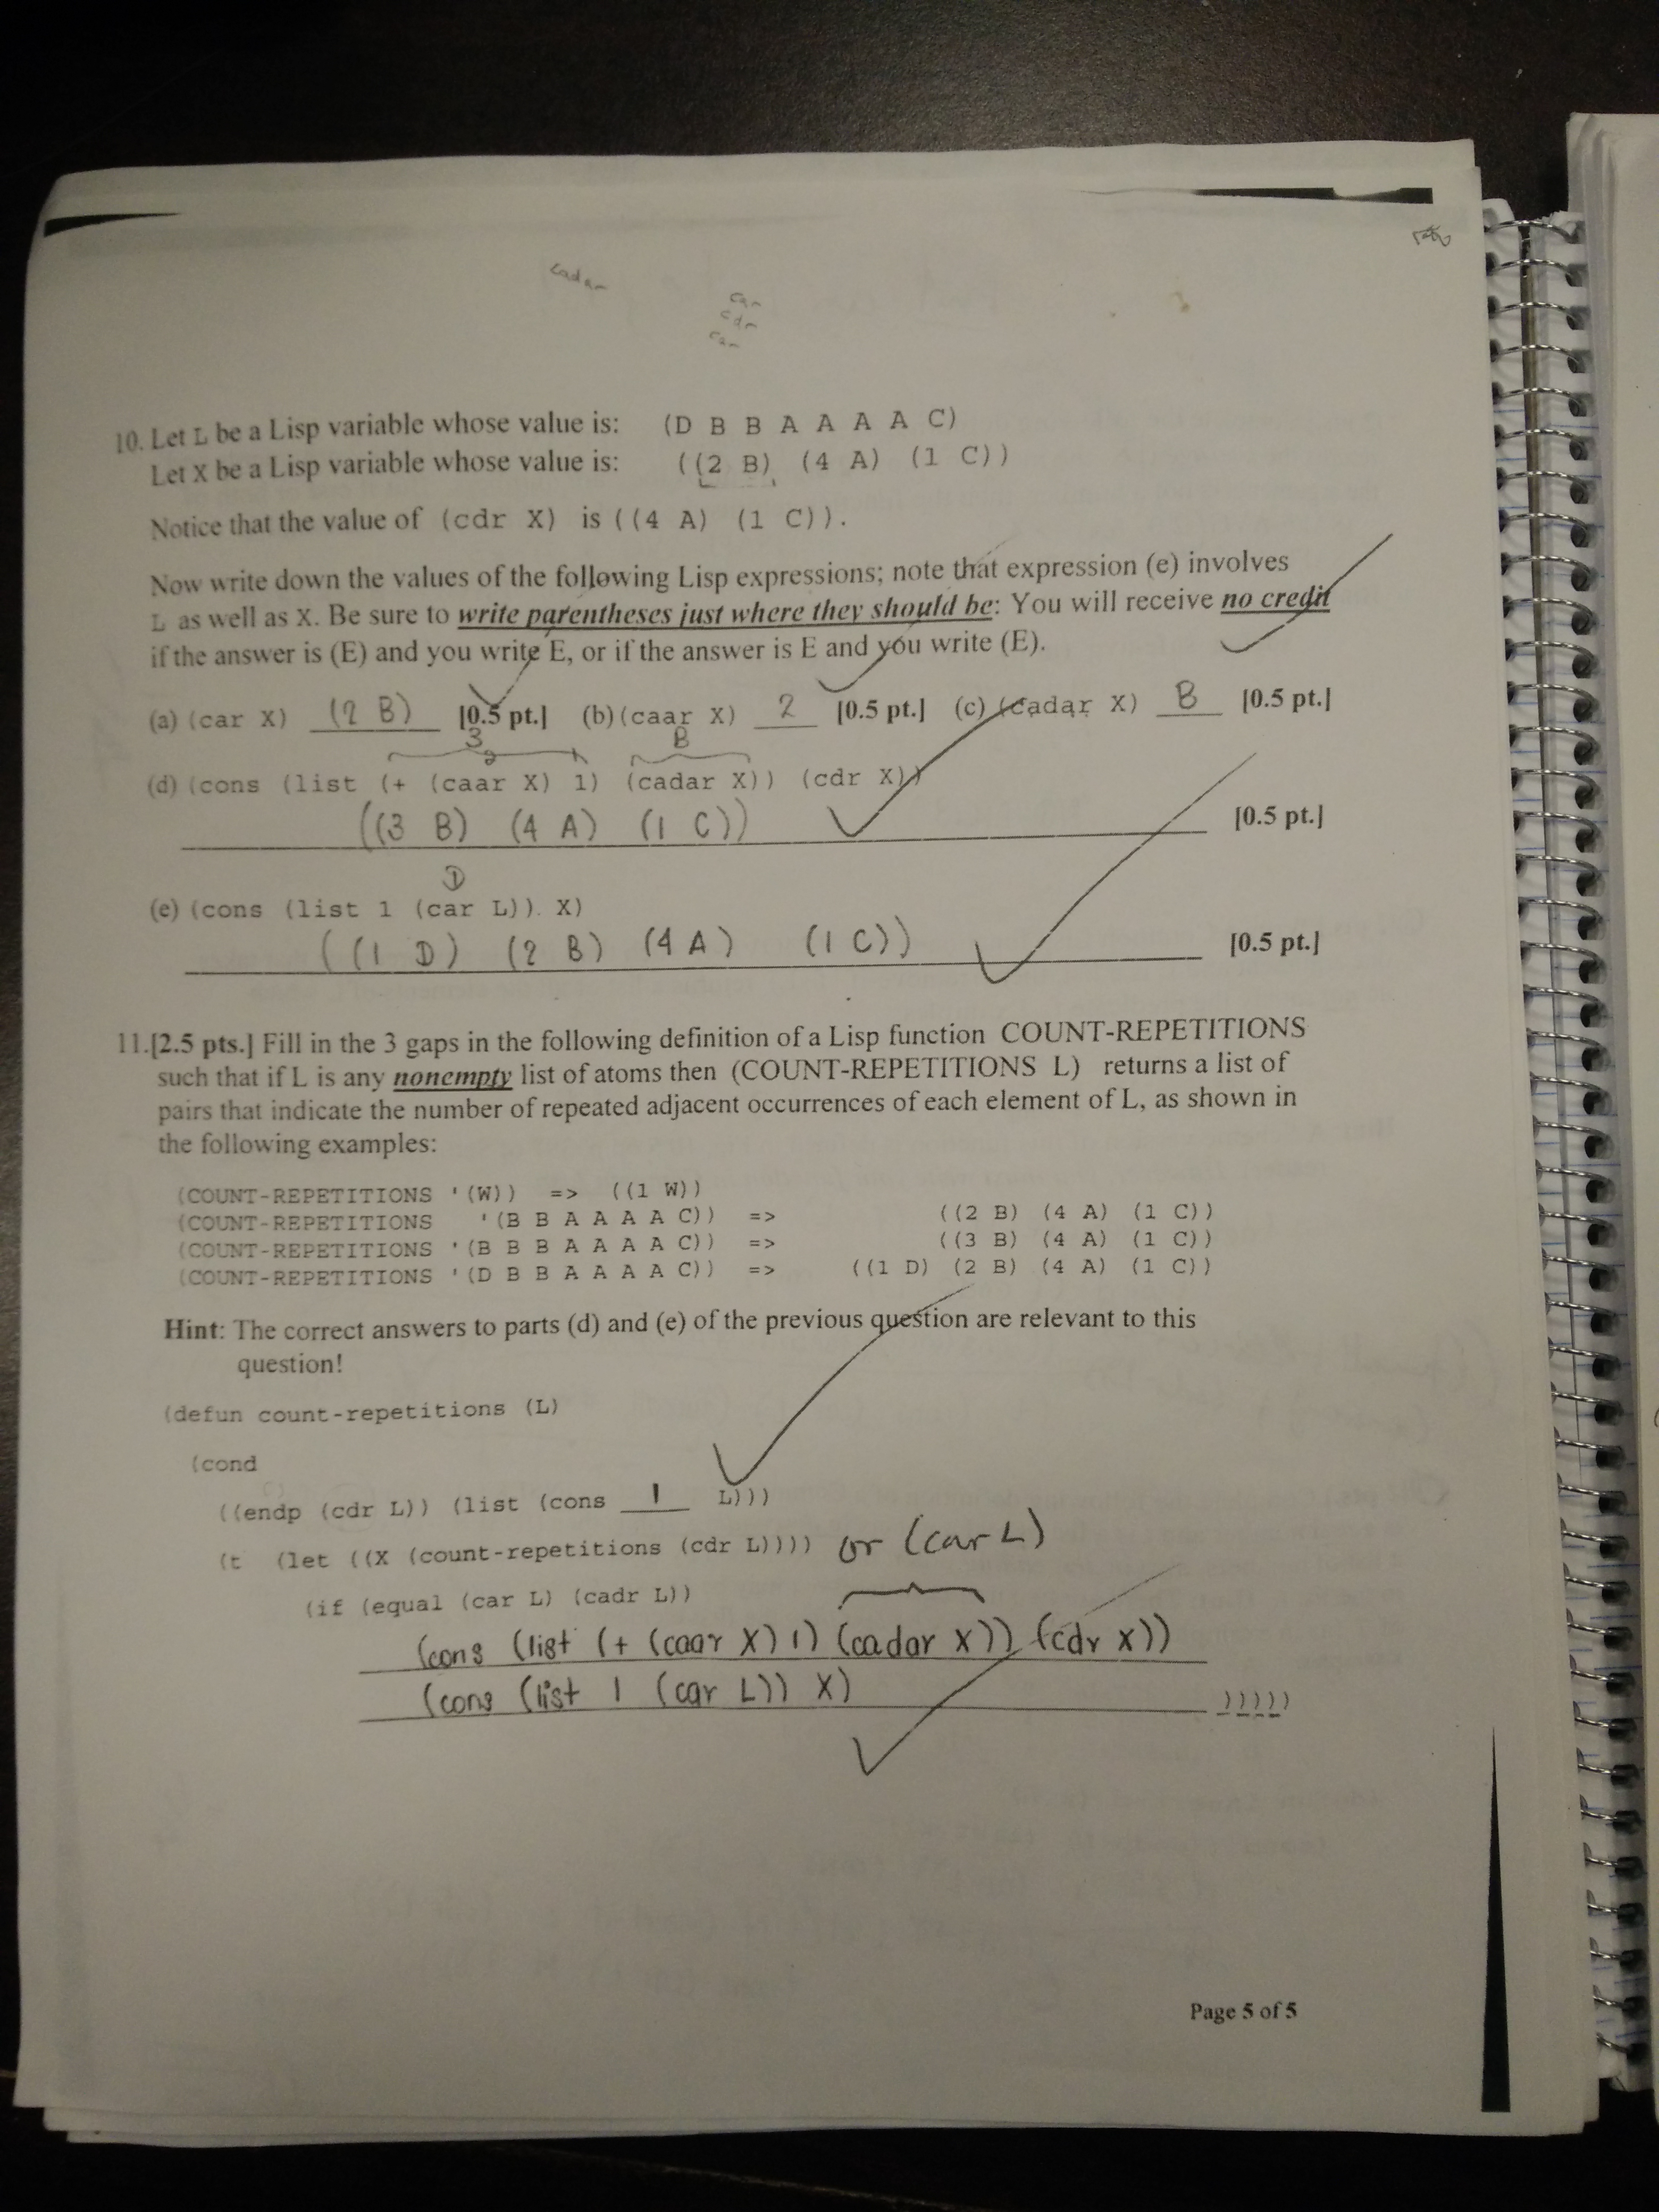 cadar
car
cdr
car
10. Let L be a Lisp variable whose value is: (D B B A A A A C)
Let X be a Lisp variable whose value is: ((2 B) (4 A) (1 C))
Notice that the value of (cdr X) is ((4 A) (1 C)).
Now write down the values of the following Lisp expressions; note that expression (e) involves
L as well as X. Be sure to write parentheses just where they should be: You will receive no credit
if the answer is (E) and you write E, or if the answer is E and you write (E).
(a) (car X) (2 B) [0.5 pt.] (b) (caar X) 2 [0.5 pt.] (c) (cadar X) B [0.5 pt.]
3 B
2
(d) (cons (list (+ (caar X) 1) (cadar X)) (cdr X))
((3 B) (4 A) (1 C)) [0.5 pt.]
D
(e) (cons (list 1 (car L)) X)
((1 D) (2 B) (4 A) (1 C)) [0.5 pt.]
11.[2.5 pts.] Fill in the 3 gaps in the following definition of a Lisp function COUNT-REPETITIONS
such that if L is any nonempty list of atoms then (COUNT-REPETITIONS L) returns a list of
pairs that indicate the number of repeated adjacent occurrences of each element of L, as shown in
the following examples:
(COUNT-REPETITIONS '(W)) => ((1 W))
(COUNT-REPETITIONS '(B B A A A A C)) => ((2 B) (4 A) (1 C))
(COUNT-REPETITIONS '(B B B A A A A C)) => ((3 B) (4 A) (1 C))
(COUNT-REPETITIONS '(D B B A A A A C)) => ((1 D) (2 B) (4 A) (1 C))
Hint: The correct answers to parts (d) and (e) of the previous question are relevant to this
question!
(defun count-repetitions (L)
(cond
((endp (cdr L)) (list (cons 1 L)))
(t (let ((X (count-repetitions (cdr L)))) or (car L)
(if (equal (car L) (cadr L))
(cons (list (+ (caar X) 1) (cadar X)) (cdr X))
(cons (list 1 (car L)) X) )))))
Page 5 of 5